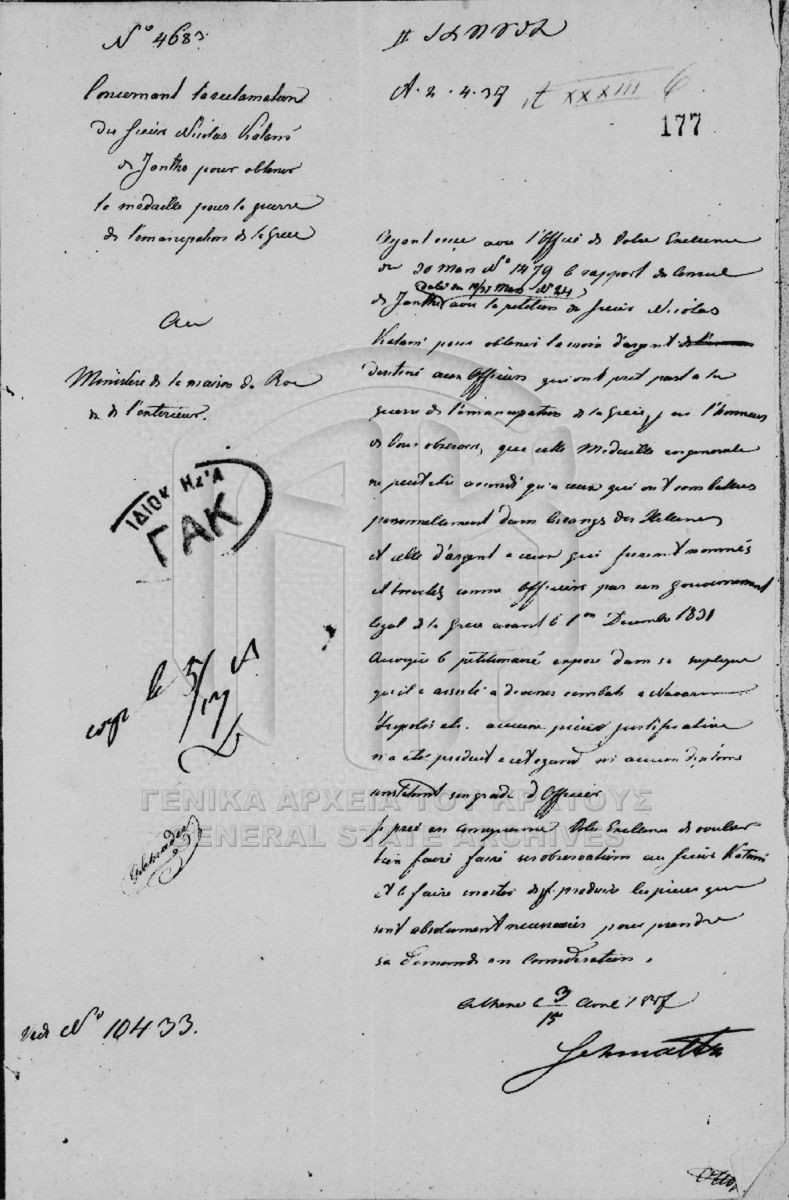 N° 4683
Concernant la reclamation
du sieur Nicolas Katani
de Janthe pour obtenir
la medaille pour la guerre
de l'emancipation de la Grece
Au
Ministere de la maison du Roi
et de l'interieur.
ΙΔΙΟΚ ΗΣ'Α
ΓΑΚ
le 5/17 A
vide N° 10433.
A. 2. 4. 37
A XXXIII 6
177
Ayant reçu avec l'Office de Votre Excellence
du 30 Mars N° 1479 le rapport du Consul
daté du Mars N° 24
de Janthe avec la petition du sieur Nicolas
Katani pour obtenir la croix d'argent
destiné aux Officiers qui ont prit part a la
guerre de l'emancipation de la Grece, j'ai l'honneur
de Vous observer, que cette Medaille en generale
ne peut etre accordé qu'a ceux qui ont combattus
personnellement dans les rangs des Hellenes
et celle d'argent a ceux qui furent nommés
et brevetés comme Officiers par un gouvernement
legal de la Grece avant le 1er Decembre 1831
Quoique le petitionaire expose dans sa suplique
qu'il a assisté a divers combats a
aucune piece justificative
n'a eté produit a cet egard ni aucun diplome
constatant son grade d'Officier
Je prie en consequence Votre Excellence de vouloir
bien faire faire ces observations au sieur Katani
et le faire inviter de produire les pieces qui
sont absolument necessaires pour prendre
sa demande en consideration.
Athene le 3/15 Avril 1837
Schmaltz
ΓΕΝΙΚΑ ΑΡΧΕΙΑ ΤΟΥ ΚΡΑΤΟΥΣ
GENERAL STATE ARCHIVES